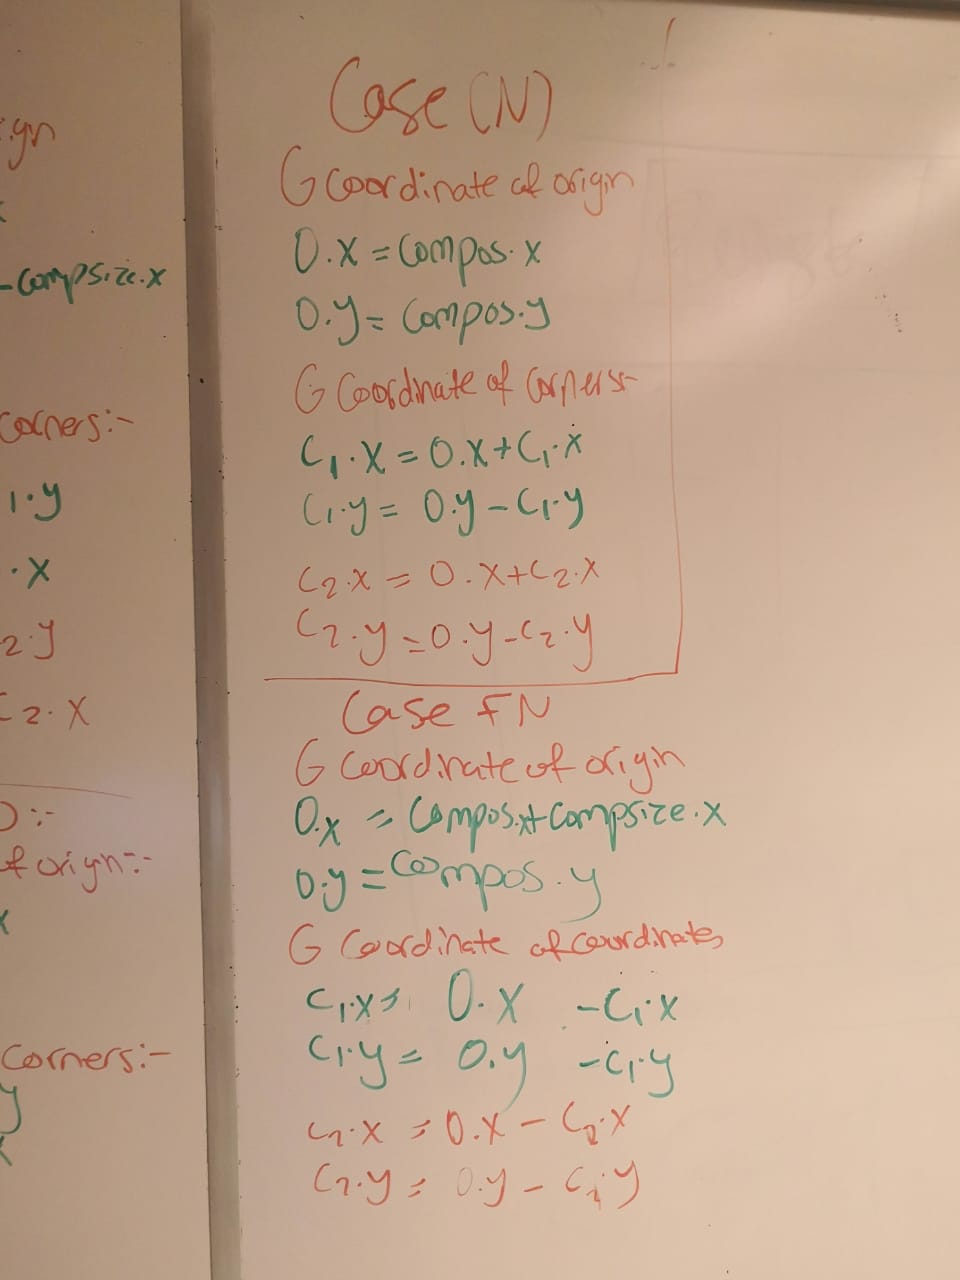 ign
-compsize.x
Corners:-
1.y
.x
2.y
C2.x
O:-
of origin:-
Corners:-
y
Case (N)
G Coordinate of origin
O.x = Compos.x
O.y = Compos.y
G Coordinate of Corners:-
C1.x = O.x + C1.x
C1.y = O.y - C1.y
C2.x = O.x + C2.x
C2.y = O.y - C2.y
Case FN
G Coordinate of origin
O.x = Compos.x + Compsize.x
O.y = Compos.y
G Coordinate of Courdinates
C1.x = O.x - C1.x
C1.y = O.y - C1.y
C2.x = O.x - C2.x
C2.y = O.y - C2.y